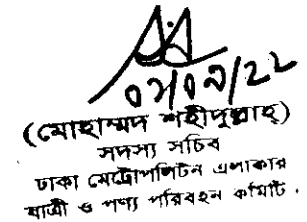 ০৭/০৯/২২
(মোহাম্মদ শহীদুল্লাহ)
সদস্য সচিব
ঢাকা মেট্রোপলিটন এলাকার
যাত্রী ও পণ্য পরিবহন কমিটি।